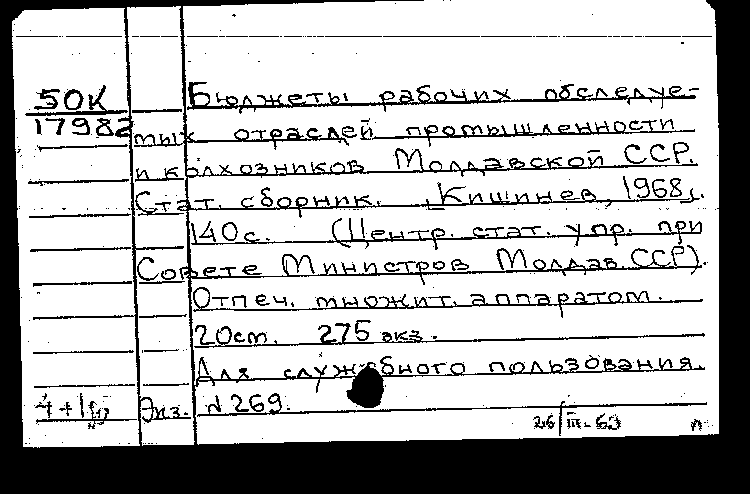 50К
17982
Бюджеты рабочих обследуе-
мых отраслей промышленности
и колхозников Молдавской ССР.
Стат. сборник. [Кишинев, 1968].
140с. (Центр. стат. упр. при
Совете Министров Молдав. ССР).
Отпеч. множит. аппаратом.
20см. 275 экз.
Для служебного пользования.
Экз. №269.
26/III-69